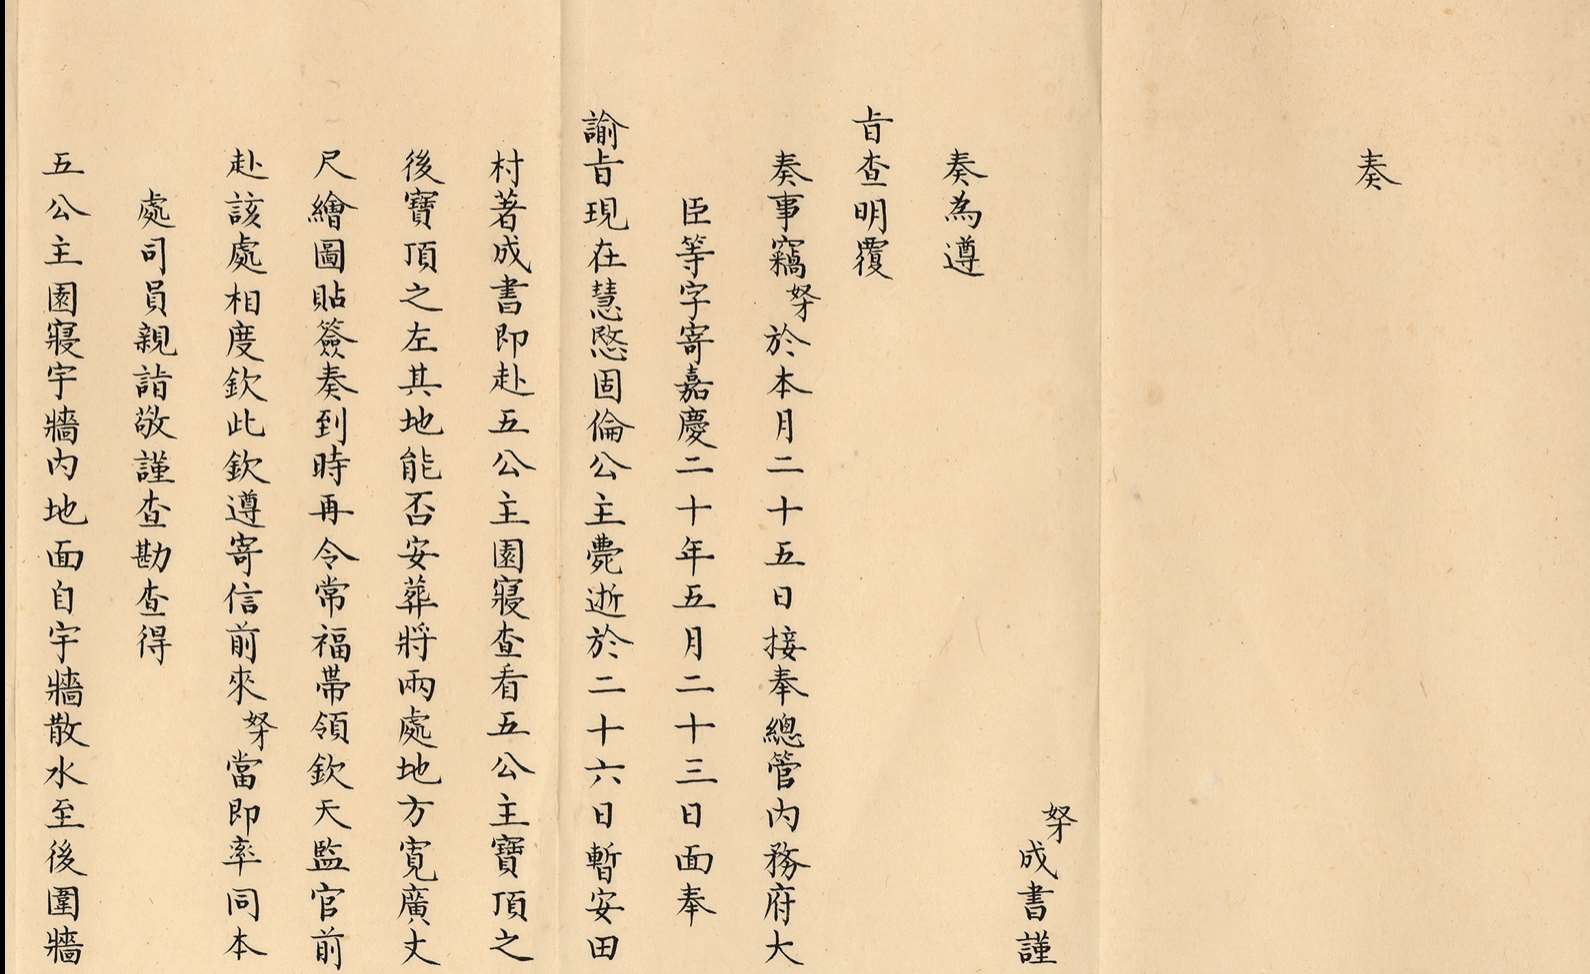 奏
奴才成書謹
奏為遵
旨查明覆
奏事竊奴才於本月二十五日接奉總管內務府大
臣等字寄嘉慶二十年五月二十三日面奉
諭旨現在慧愍固倫公主薨逝於二十六日暫安田
村著成書即赴五公主園寢查看五公主寶頂之
後寶頂之左其地能否安葬將兩處地方寬廣丈
尺繪圖貼簽奏到時再令常福帶領欽天監官前
赴該處相度欽此欽遵寄信前來奴才當即率同本
處司員親詣敬謹查勘查得
五公主園寢宇牆內地面自宇牆散水至後圍牆